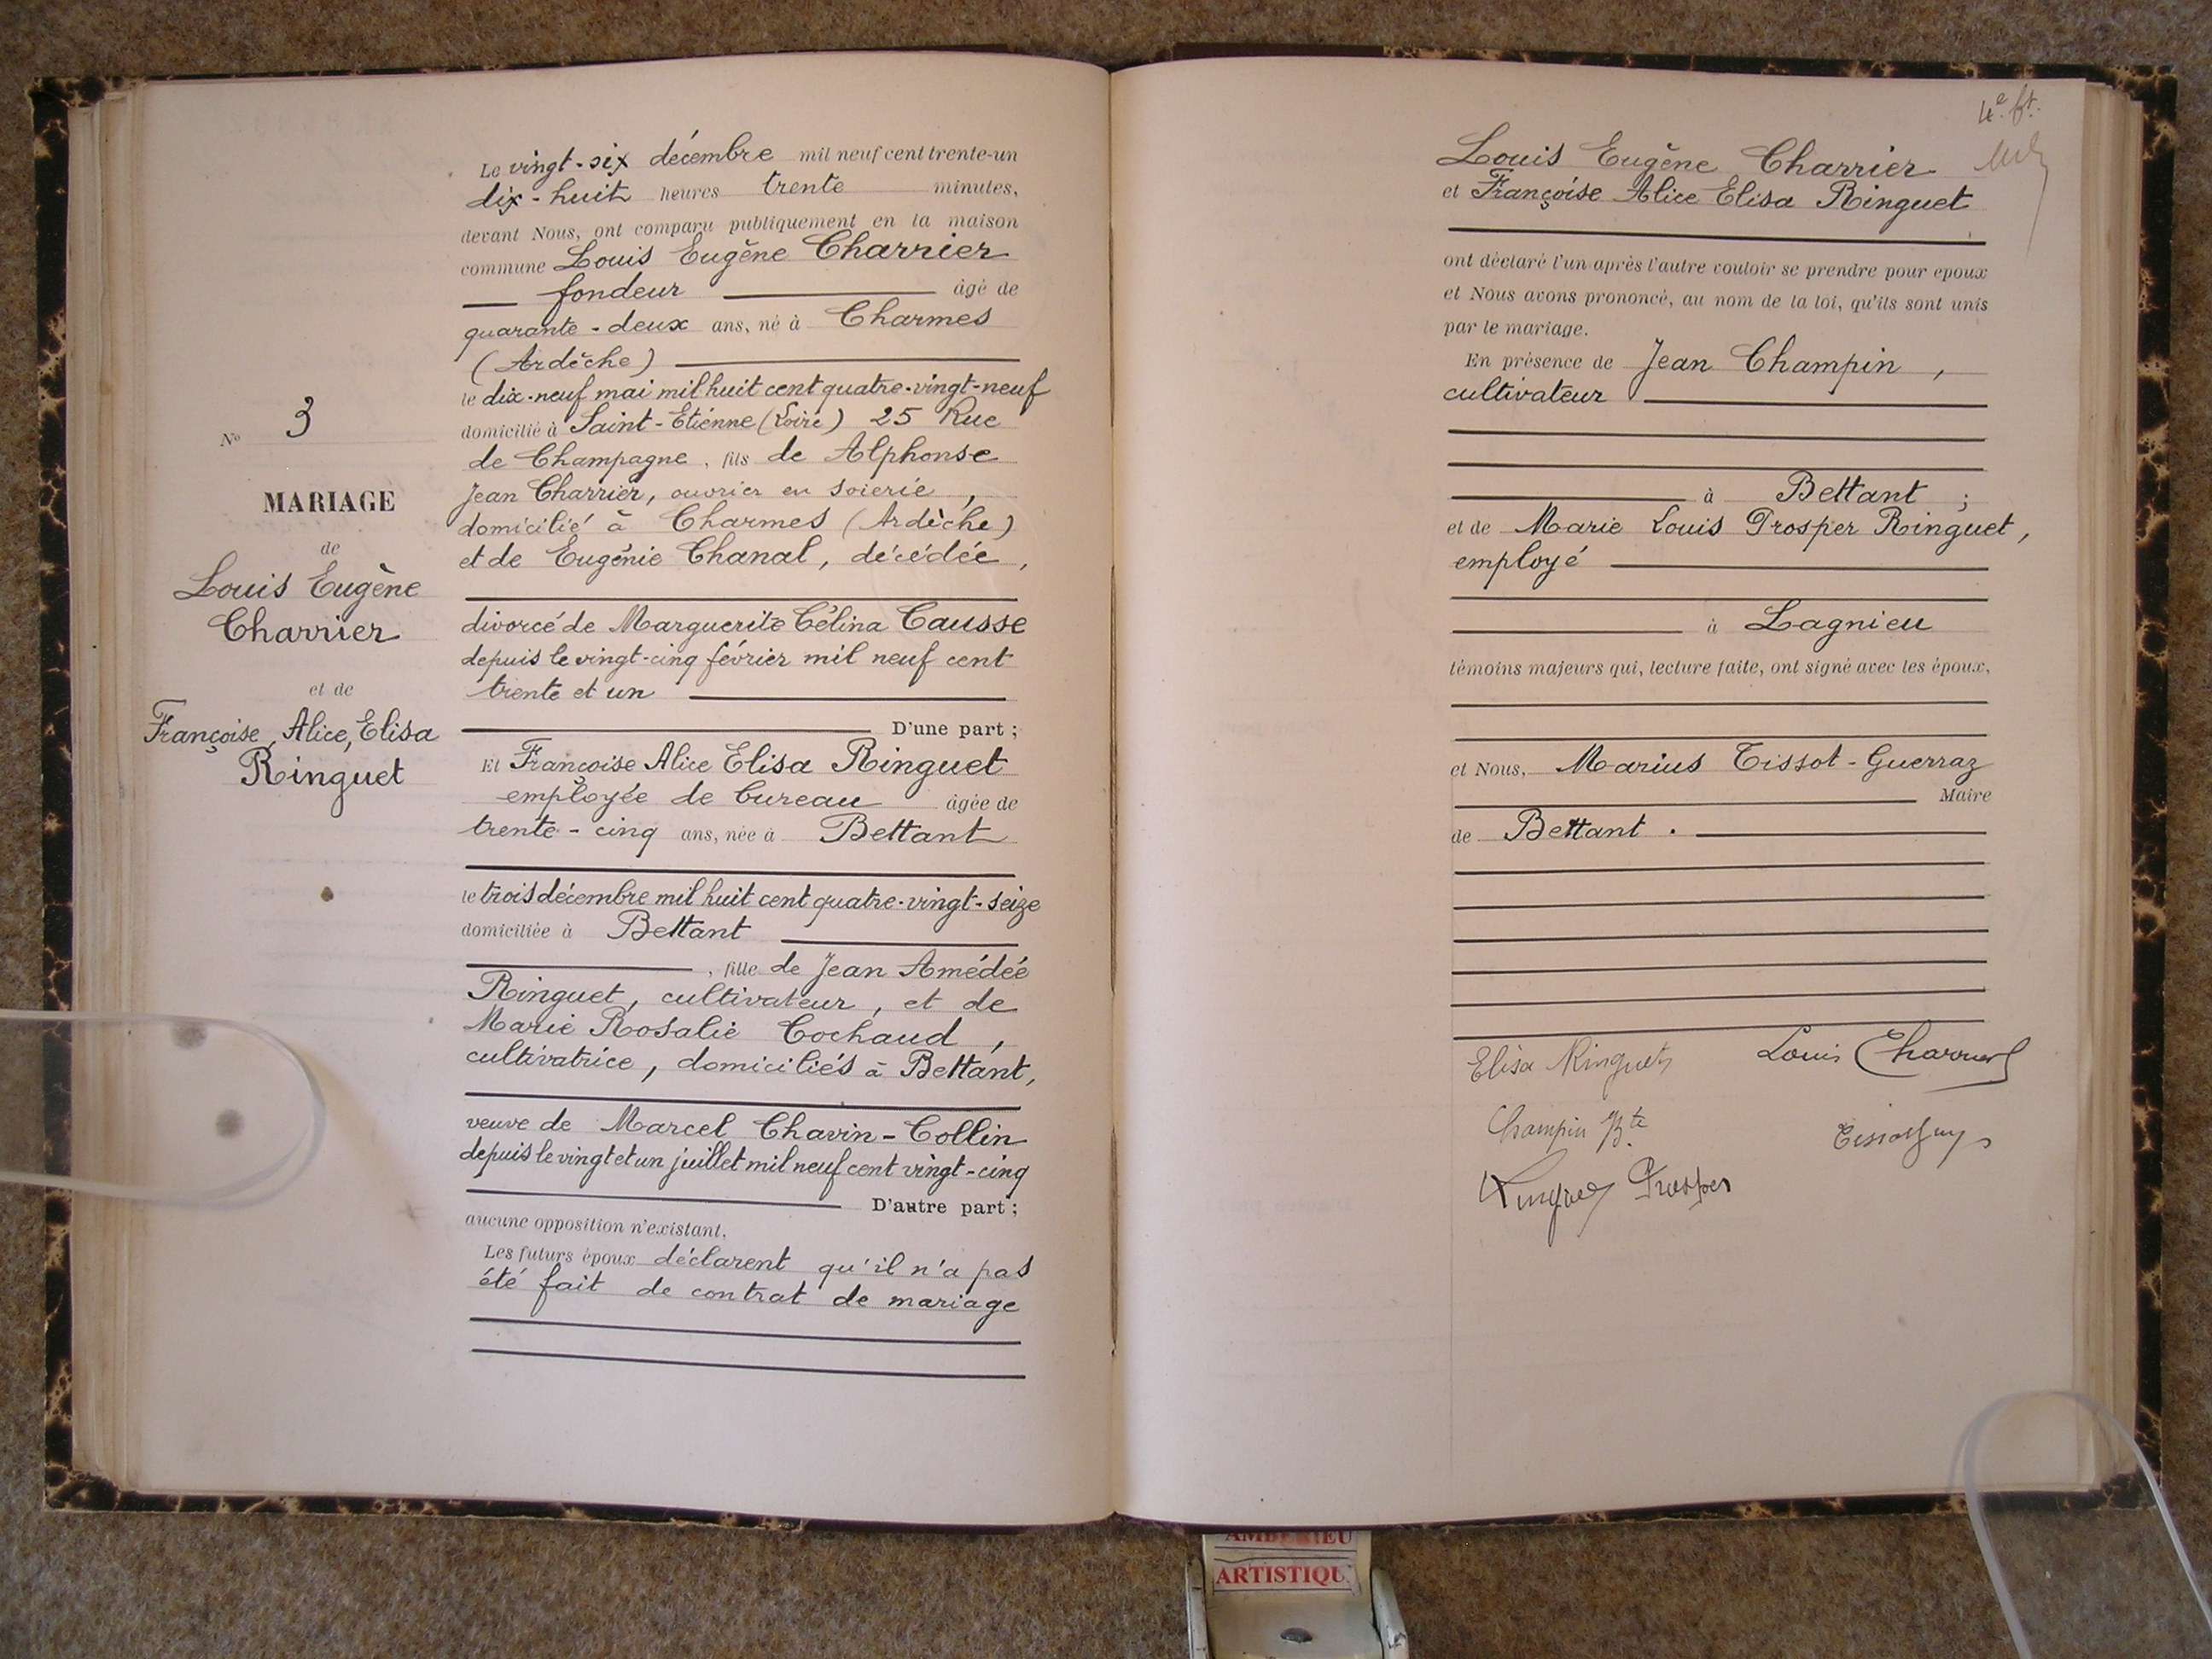 Nº 3
MARIAGE
de
Louis Eugène
Charrier
et de
Françoise, Alice, Elisa
Ringuet
Le vingt-six décembre mil neuf cent trente-un
dix-huit heures trente minutes,
devant Nous, ont comparu publiquement en la maison
commune Louis Eugène Charrier
fondeur âgé de
quarante-deux ans, né à Charmes
(Ardèche)
le dix-neuf mai mil huit cent quatre-vingt-neuf
domicilié à Saint-Etienne (Loire) 25 Rue
de Champagne, fils de Alphonse
Jean Charrier, ouvrier en soierie,
domicilié à Charmes (Ardèche)
et de Eugénie Chanal, décédée,
divorcé de Marguerite Célina Causse
depuis le vingt-cinq février mil neuf cent
trente et un
D'une part ;
Et Françoise Alice Elisa Ringuet
employée de bureau âgée de
trente-cinq ans, née à Bettant
le trois décembre mil huit cent quatre-vingt-seize
domiciliée à Bettant
, fille de Jean Amédée
Ringuet, cultivateur, et de
Marie Rosalie Cochaud,
cultivatrice, domiciliés à Bettant,
veuve de Marcel Chavin-Collin
depuis le vingt et un juillet mil neuf cent vingt-cinq
D'autre part ;
aucune opposition n'existant.
Les futurs époux déclarent qu'il n'a pas
été fait de contrat de mariage
4e ft.
Louis Eugène Charrier
et Françoise Alice Elisa Ringuet
ont déclaré l'un après l'autre vouloir se prendre pour epoux
et Nous avons prononcé, au nom de la loi, qu'ils sont unis
par le mariage.
En présence de Jean Champin,
cultivateur
à Bettant ;
et de Marie Louis Prosper Ringuet,
employé
à Lagnieu
témoins majeurs qui, lecture faite, ont signé avec les époux,
et Nous, Marius Tissot-Guerraz
Maire
de Bettant.
Elisa Ringuet Louis Charrier
Champin Bte
Ringuet Prosper
AMBERIEU
ARTISTIQU